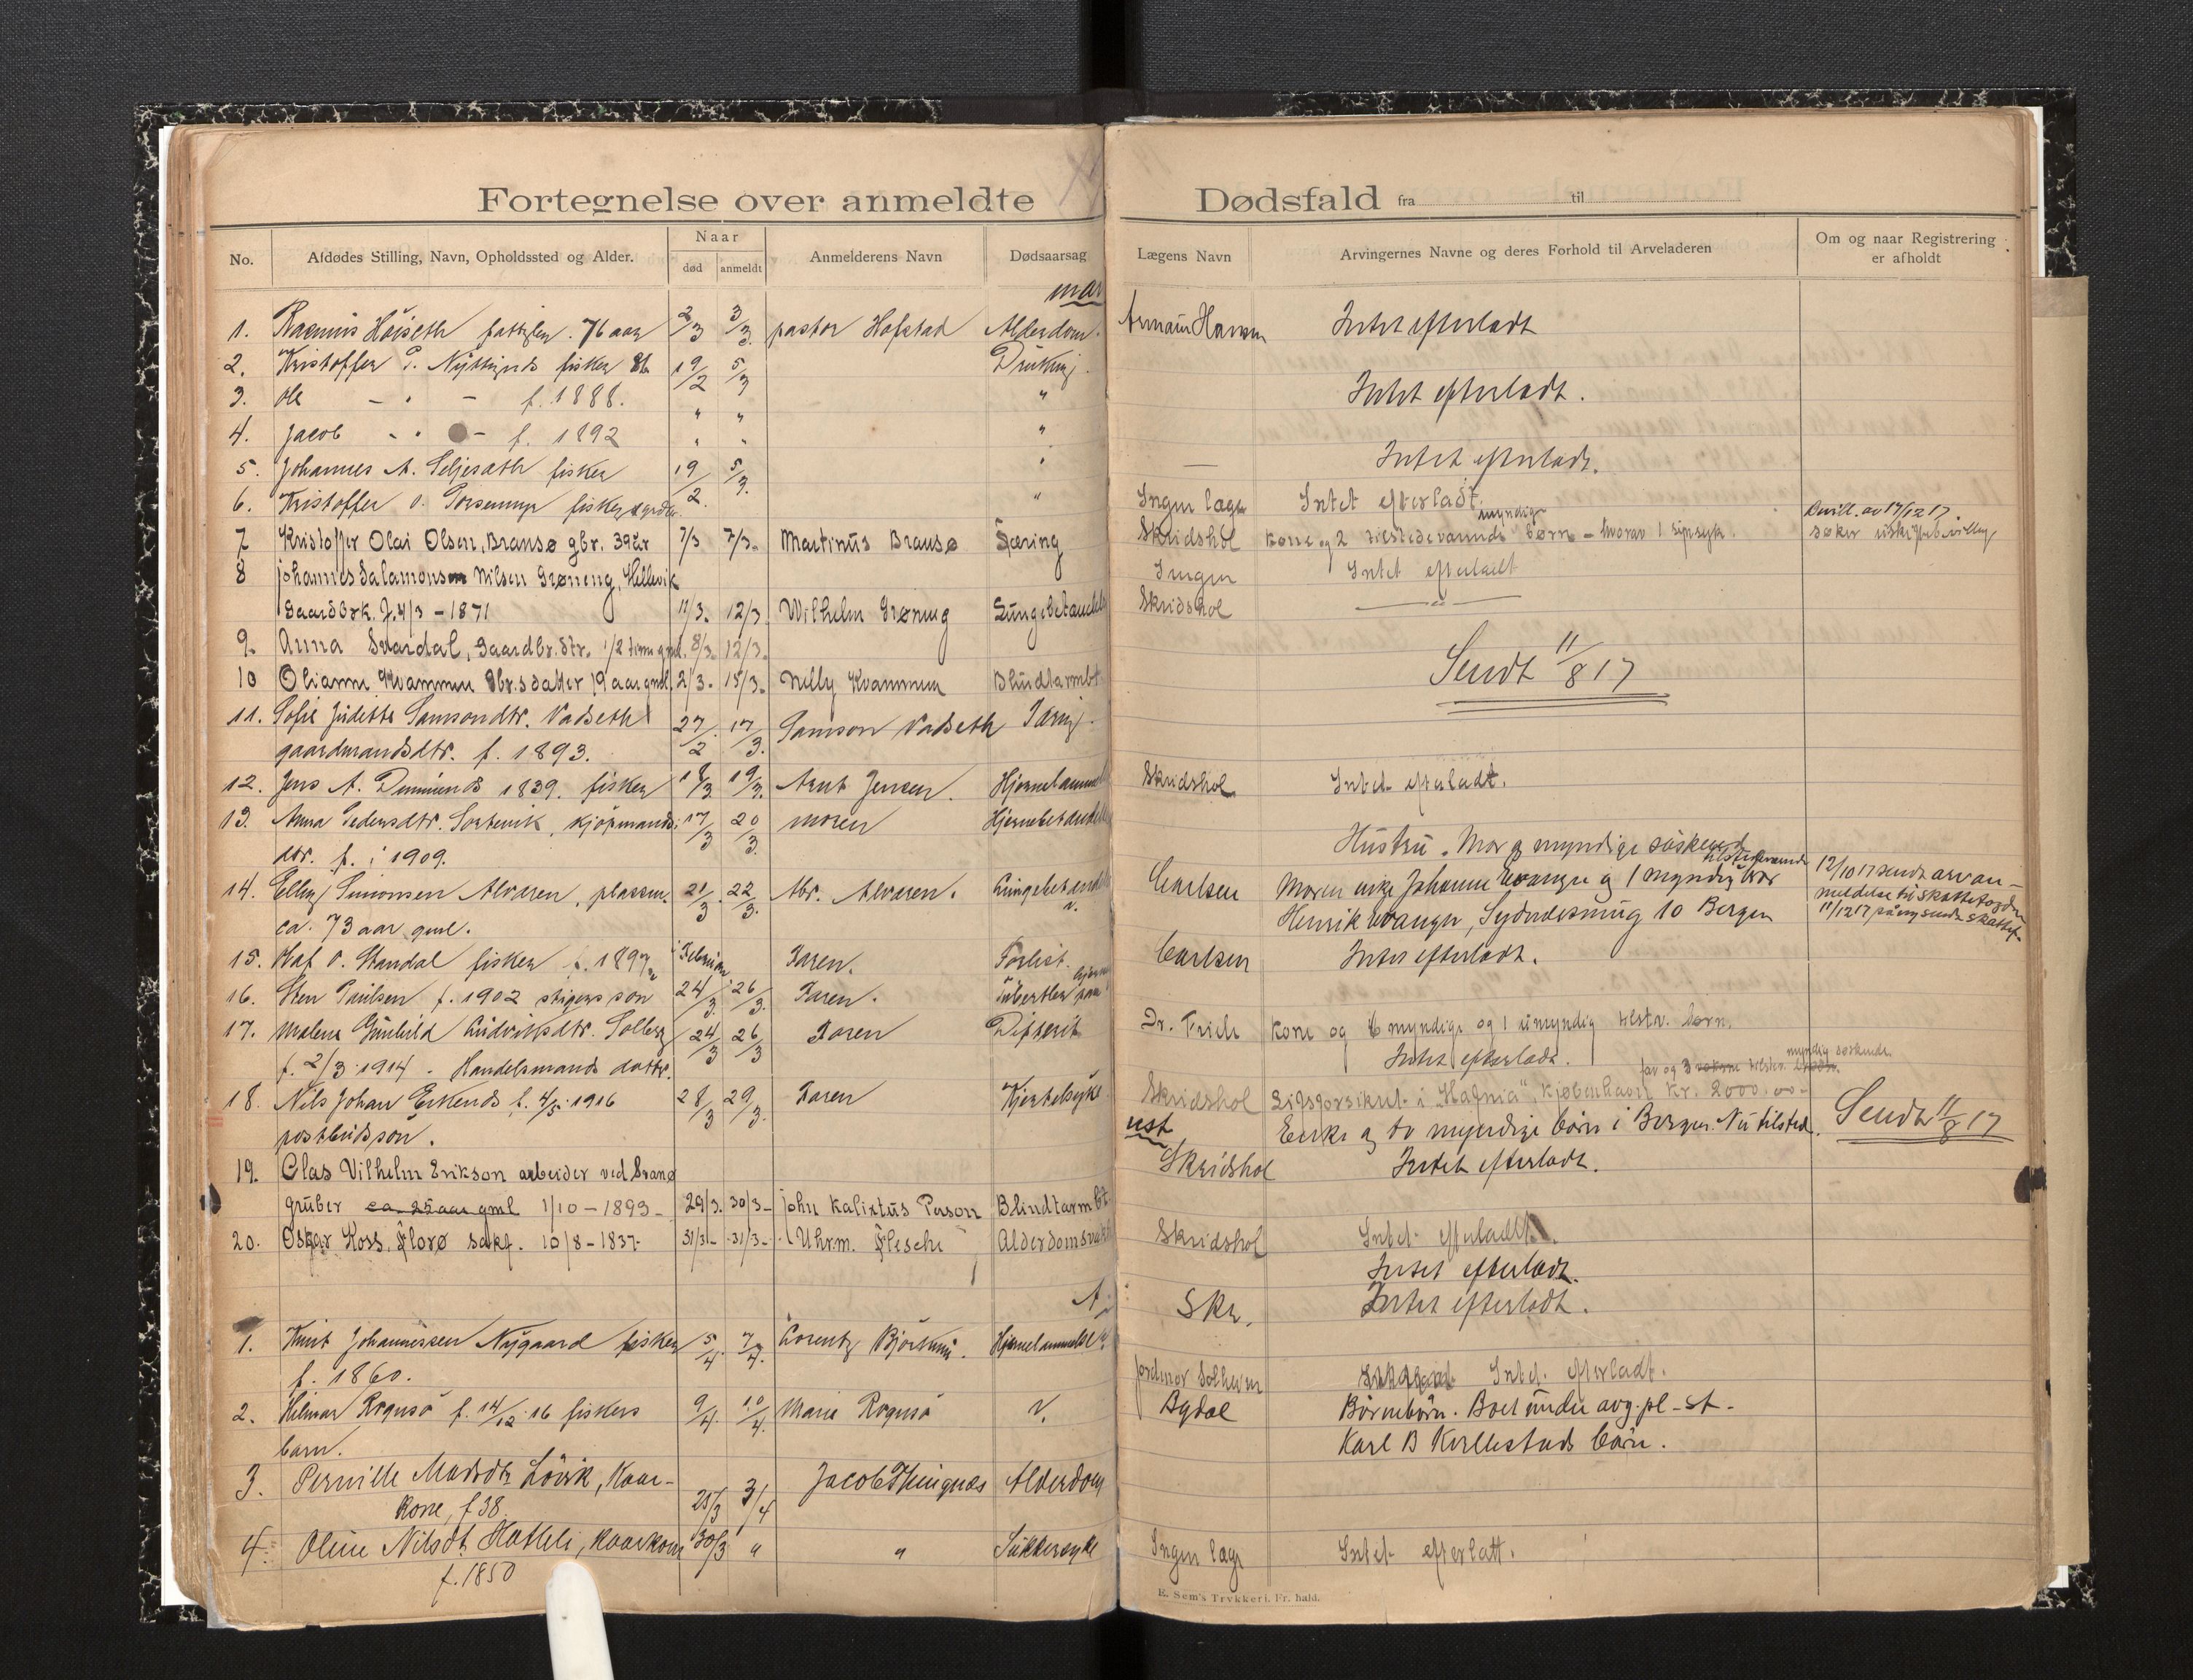 Fortegnelse over anmeldte
No.
Afdødes Stilling, Navn, Opholdssted og Alder.
Naar
død
anmeldt
Anmelderens Navn
Dødsaarsag
mar
1. Rasmus Höiseth fattiglem. 76 aar 2/3 3/3. pastor Hofstad Alderdom.
2. Kristoffer P. fisker 19/2 5/3 Drukning.
3. Ole - " - f. 1888. " " "
4. Jacob - " - f. 1892 " " "
5. Johannes A. Seljeseth fisker 19/2. 5/3. "
6. Kristoffer O. fisker "
7 Kristoffer Olai Olsen, Bransø gbr. 39 år 7/3 7/3. Martinus Bransø Tæring
8 Johannes Salamonsen Nilsen Grøneng, Hellevik
Gaardbrk. f. 4/3 - 1871 11/3. 12/3. Wilhelm Grøneng Lungebetændels
9. Anna Svardal, Gaardbr. dtr. 1/2 time gml. 8/3. 12/3.
10 Olianne Kvammen Gbr.s datter 19 aar gml. 2/3. 15/3. Nelly Kvammen Blindtarmbt.
11. Sofie Judette Samsondtr. Vadseth 27/2 17/3. Samson Vadseth Tæring.
gaardmandsdtr. f. 1893.
12. Jens A. 1839. fisker 18/3 19/3. Arnt Jensen. Hjernebetænd
13. Anna Pedersdtr. Sortevik, kjöpmands 17/3 20/3. moren Hjernebetændel
dtr. f. i 1909.
14. Elling Simonsen Alvaren, plassm. 21/3 22/3. Abr. Alvaren. Lungebetændels
ca. 73 aar gml.
15. Olaf O. Standal fisker f. 1897 i Februar Faren. Forlist.
16. Sten Paulsen f. 1902 stigers son 24/3. 26/3. Faren.
17. Malene Gunhild Ludviksdtr. Solberg 24/3 26/3 Faren Difterit
f. 2/3 1914 - Handelsmands datter.
18. Nils Johan f. 4/5. 1916 28/3 29/3. Faren Kjertelsyke
postbudssön.
19. Clas Vilhelm Erikson arbeider ved Svanø
gruber ca. 25 aar gml 1/10 - 1893 - 29/3. 30/3 - John Kalixtus Person Blindtarmbt.
20. Oskar Koss, Florø sakf. 10/8 - 1837. 31/3 - 31/3 - Uhrm. Flesche Alderdomsvak
A
1. Knut Johannessen Nygaard fisker 5/4. 7/4. Lorentz Hjernebetændelse.
f. 1860.
2. Hilmar Rognsö f. 14/12. 16 fiskers 9/4. 10/4. Marie Rognsö
barn.
3. Pernille Madsdtr Lövik, Kaar-
kone, f. 38. 25/3 3/4 Jacob Thingnes Alderdom
4. Oline Nilsdt. Hatleli, kaarkone 30/3 " " Sukkersyke
f. 1850
Dødsfald fra til
Lægens Navn
Arvingernes Navne og deres Forhold til Arveladeren
Om og naar Registrering
er afholdt
Intet efterladt
Intet efterladt.
— Intet efterladt.
Ingen læge Intet efterladt.
myndige
Skridshol kone og 2 tilstedeværende børn - hvorav 1 sinsyk.
Bevill. av 17/12 17.
søker uskiftebevilling
Ingen Intet efterladt
Skridshol — " —
Sendt 11/8 17
Skridshol Intet efterladt.
Hustru. Mor og myndige söskend
tilstedeværende
Carlsen Moren enke Johanne og 1 myndig bror
Henrik 10 Bergen
12/10 17 sendt arvan-
meldelse til skattefogden
11/12 17 påny sendt skattef.
Carlsen Intet efterladt.
Dr. Friele Kone og 6 myndige og 1 umyndig tilstv. børn.
Intet efterladt.
myndig søskende
far og 3 voksne tilstev.
Skridshol Livsforsikret i "Hafnia", Kjøbenhavn kr. 2000.00 -
Enke og to myndige børn i Bergen. Nu tilsted.
Sendt 11/8 17
Skridshol Intet efterladt.
Skridshol Intet efterladt.
Intet efterladt.
Skr. Intet efterladt.
Jordmor Solheim Intet efterladt.
Bydal Börnebörn. Boet under avg.pl - st -
Karl B börn.
Ingen læge Intet efterlatt.
E. Sem's Trykkeri. Fr. hald.